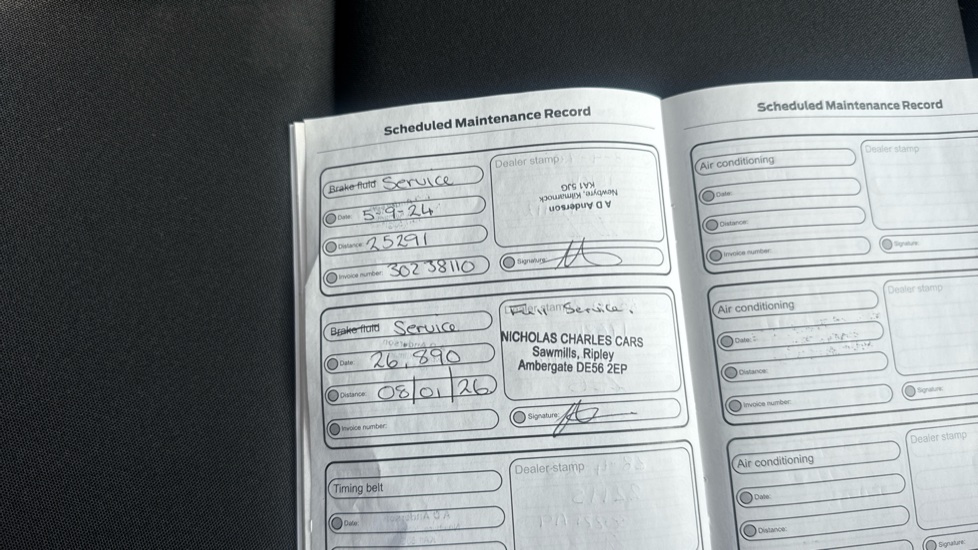 Scheduled Maintenance Record
Brake fluid Service
Date: 5-9-24
Distance: 25291
Invoice number: 30238110
Dealer stamp
A D Anderson
Newbyre, Kilmarnock
KA1 5JG
Signature:
Brake fluid Service
Date: 26,890
Distance: 08/01/26
Invoice number:
Service.
NICHOLAS CHARLES CARS
Sawmills, Ripley
Ambergate DE56 2EP
Signature:
Timing belt
Date:
Dealer stamp
Scheduled Maintenance Record
Air conditioning
Date:
Distance:
Invoice number:
Dealer stamp
Signature:
Air conditioning
Date:
Distance:
Invoice number:
Dealer stamp
Signature:
Air conditioning
Date:
Distance:
Dealer stamp
Signature: